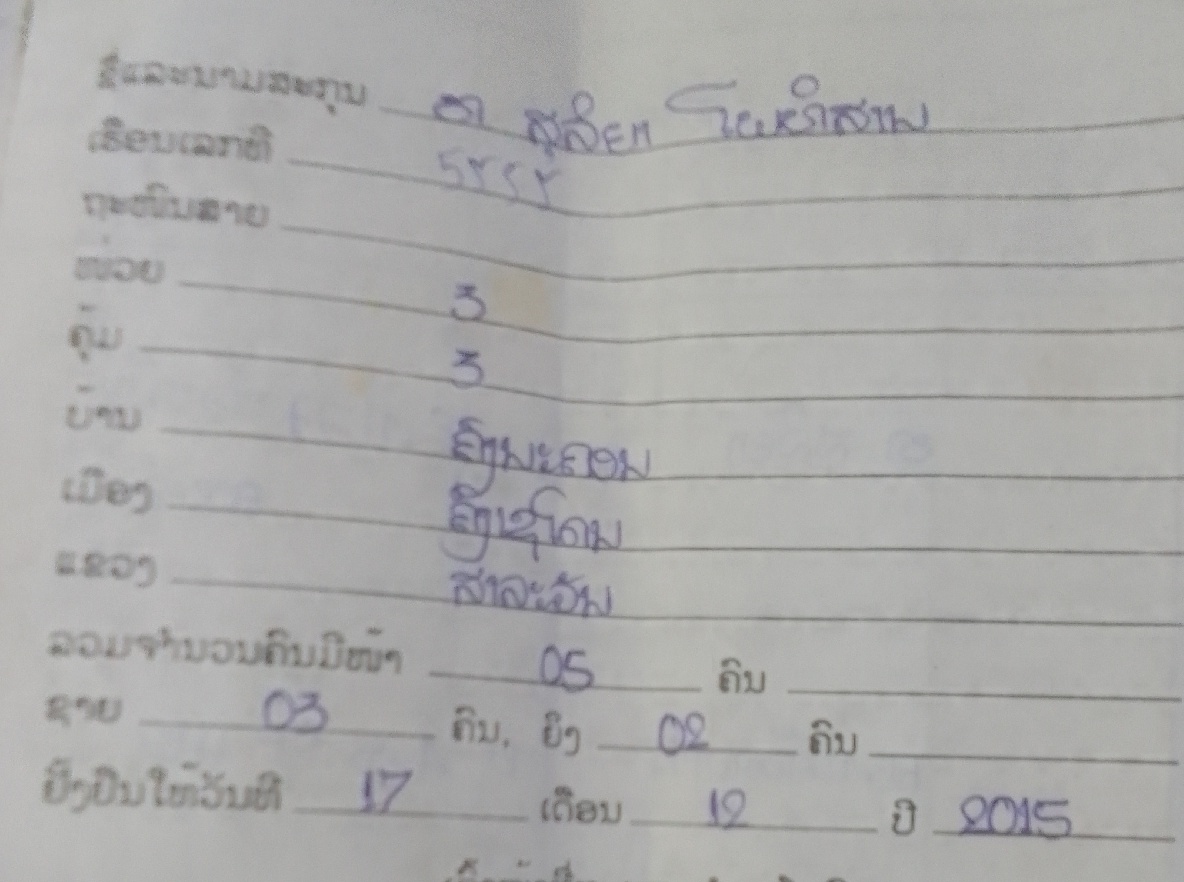 ຊື່ແລະນາມສະກຸນ ທ ສຸລິຍາ ໂພທຳສານ
ເຮືອນເລກທີ
ຖະໜົນສາຍ
ໜ່ວຍ 3
ຄຸ້ມ 3
ບ້ານ ຄົງນະຄອນ
ເມືອງ ຄົງເຊໂດນ
ແຂວງ ສາລະວັນ
ລວມຈຳນວນຄົນມີໜ້າ 05 ຄົນ
ຊາຍ 03 ຄົນ, ຍິງ 02 ຄົນ
ຢັ້ງຢືນໃຫ້ວັນທີ 17 ເດືອນ 12 ປີ 2015